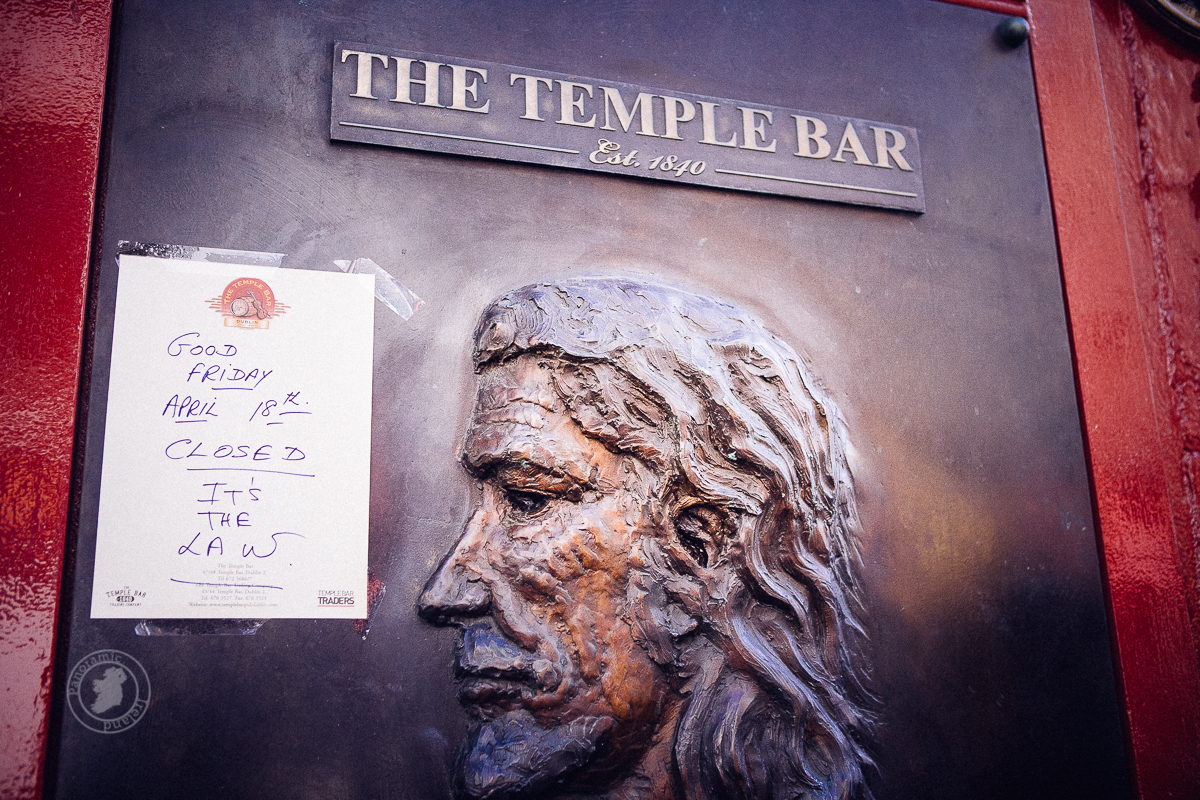 THE TEMPLE BAR
Est. 1840
THE TEMPLE BAR
DUBLIN
GOOD
FRIDAY
APRIL 18TH.
CLOSED
IT'S
THE
LAW
The Temple Bar
47/48 Temple Bar, Dublin 2.
THE
TEMPLE BAR
1840
TRADING COMPANY
TEMPLE BAR
TRADERS
Panoramic
Ireland